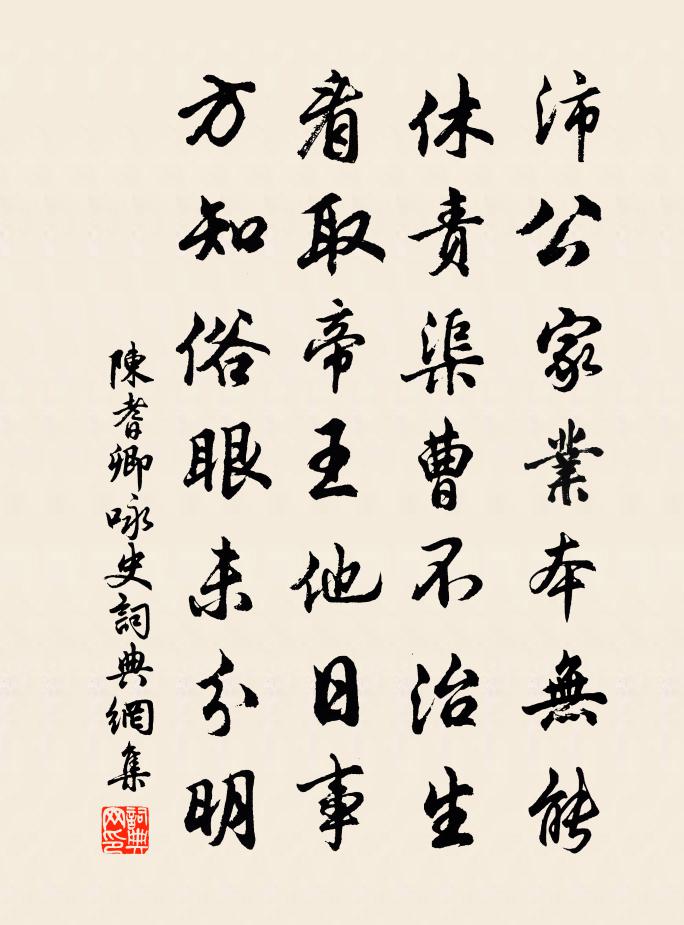 沛公家業本無能
休責渠曹不治生
看取帝王他日事
方知俗眼未分明
陳耆卿咏史詞典網集
詞典網印